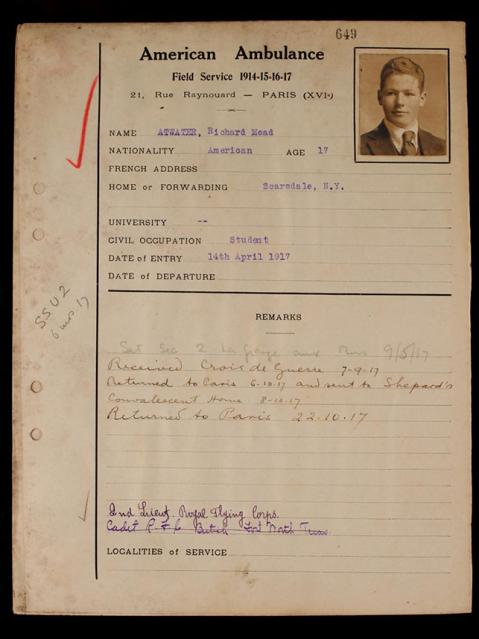 649
American Ambulance
Field Service 1914-15-16-17
21, Rue Raynouard — PARIS (XVIe)
NAME ATWATER, Richard Mead
NATIONALITY American AGE 17
FRENCH ADDRESS
HOME or FORWARDING Scarsdale, N.Y.
UNIVERSITY --
CIVIL OCCUPATION Student
DATE of ENTRY 14th April 1917
DATE of DEPARTURE
SSU 2
6 mos 17
REMARKS
Sec 2 La Grange aux Bois 9/5/17
Received Croix de Guerre 7-9-17
Returned to Paris 6-10-17 and sent to Shepard's
Convalescent Home 8-10-17
Returned to Paris 22.10.17
2nd Lieut. Royal Flying Corps.
Cadet R F C British Fort Worth Texas
LOCALITIES of SERVICE